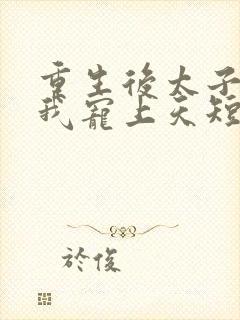 重生後太子
我寵上天短
於俊